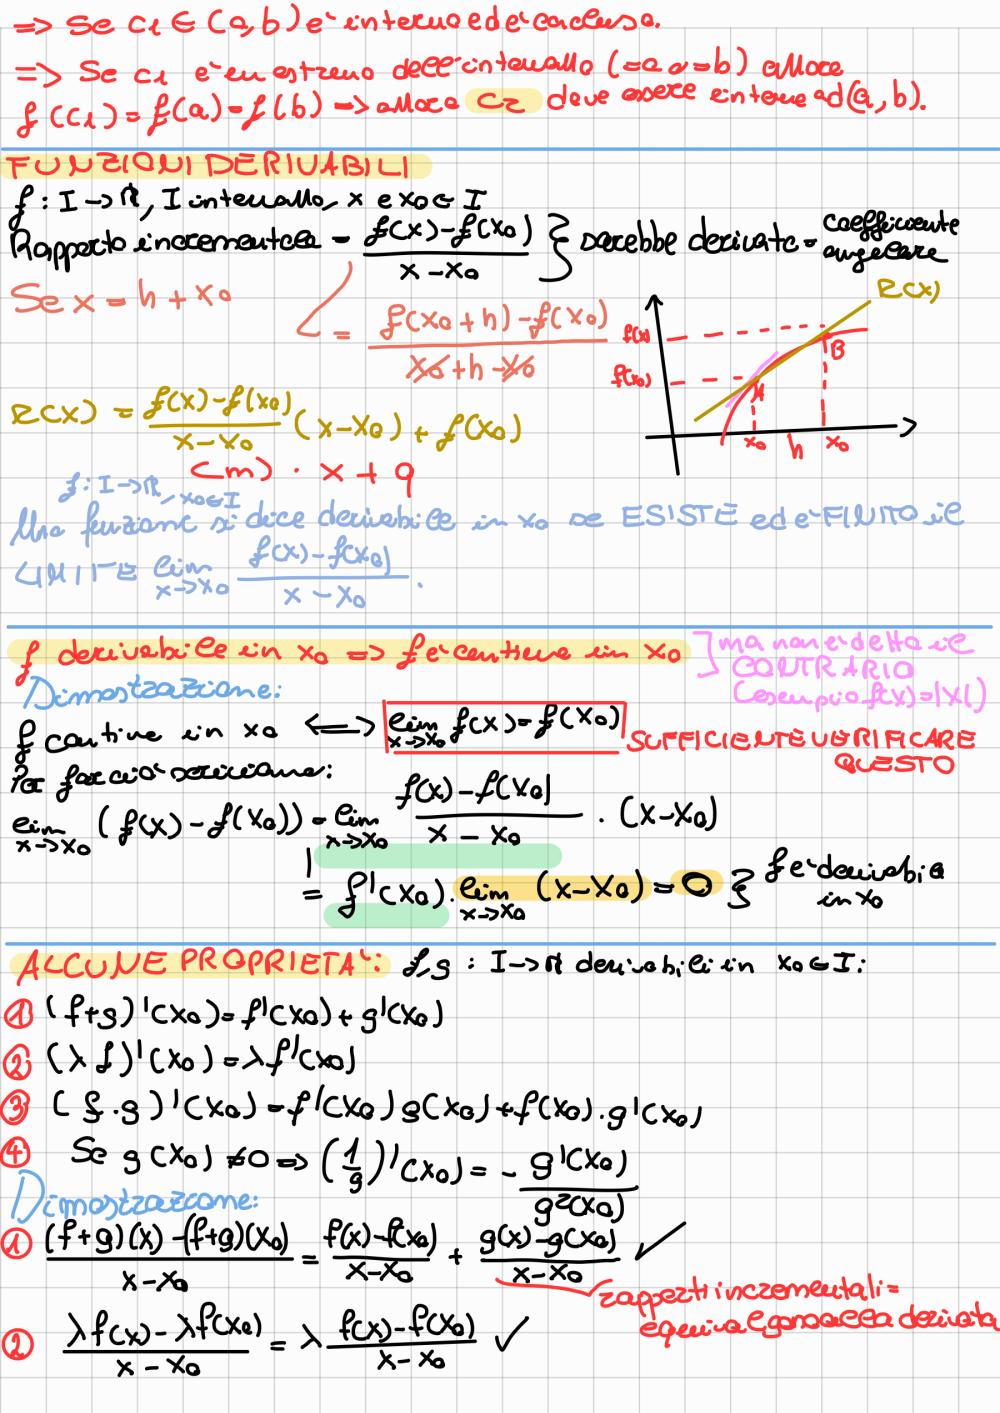 => Se c1 ∈ (a,b) è interno ed è concluso.
=> Se c1 è un estremo dell'intervallo (=a o =b) allora
f(c1) = f(a) = f(b) => allora c2 deve essere interno ad (a,b).
FUNZIONI DERIVABILI
f : I → ℝ, I intervallo, x e x0 ∈ I
Rapporto incrementale = (f(x) - f(x0)) / (x - x0) } sarebbe derivata = coefficiente angolare
Se x = h + x0
= (f(x0 + h) - f(x0)) / (x0 + h - x0)
R(x)
f(x)
f(x0)
A
B
x0 h x0
R(x) = (f(x) - f(x0)) / (x - x0) (x - x0) + f(x0)
(m) · x + q
f : I → ℝ, x0 ∈ I
Una funzione si dice derivabile in x0 se ESISTE ed è FINITO il
LIMITE lim x→x0 (f(x) - f(x0)) / (x - x0).
f derivabile in x0 => f è continua in x0
] ma non è detto il
CONTRARIO
(esempio f(x) = |x|)
Dimostrazione:
f continua in x0 <=> lim x→x0 f(x) = f(x0)
SUFFICIENTE VERIFICARE
QUESTO
Per farciò scriviamo:
lim x→x0 (f(x) - f(x0)) = lim x→x0 (f(x) - f(x0)) / (x - x0) · (x - x0)
= f'(x0) · lim x→x0 (x - x0) = 0 } f è derivabile in x0
ALCUNE PROPRIETA': f,g : I → ℝ derivabili in x0 ∈ I:
① (f+g)'(x0) = f'(x0) + g'(x0)
② (λ f)'(x0) = λ f'(x0)
③ (f · g)'(x0) = f'(x0) g(x0) + f(x0) · g'(x0)
④ Se g(x0) ≠ 0 => (1/g)'(x0) = - g'(x0) / g²(x0)
Dimostrazione:
① ((f+g)(x) - (f+g)(x0)) / (x - x0) = (f(x) - f(x0)) / (x - x0) + (g(x) - g(x0)) / (x - x0) ✓
rapporti incrementali =
equivalgono alla derivata
② (λ f(x) - λ f(x0)) / (x - x0) = λ (f(x) - f(x0)) / (x - x0) ✓